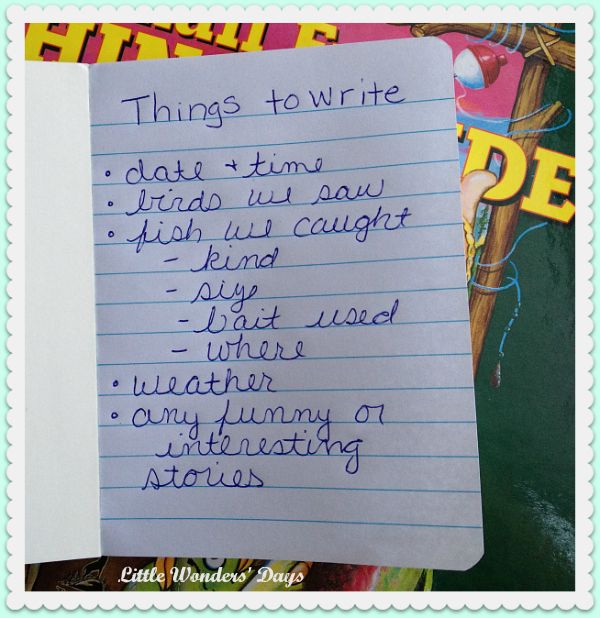 HIN
DE
Things to write
• date + time
• birds we saw
• fish we caught
- kind
- size
- bait used
- where
• weather
• any funny or
interesting
stories
Little Wonders' Days